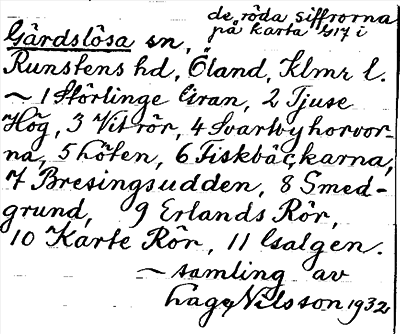 de röda siffrorna
på karta 417 i
Gärdslösa sn,
Runstens hd, Öland, Klmr l.
~ 1 Störlinge Gran, 2 Tjuse
Hög, 3 Vit rör, 4 Svartvyhorvor-
na, 5 Löten, 6 Fiskbäckarna,
7 Bresingsudden, 8 Smed-
grund, 9 Erlands Rör,
10 Karte Rör, 11 Galgen.
~ samling av
Nilsson 1932